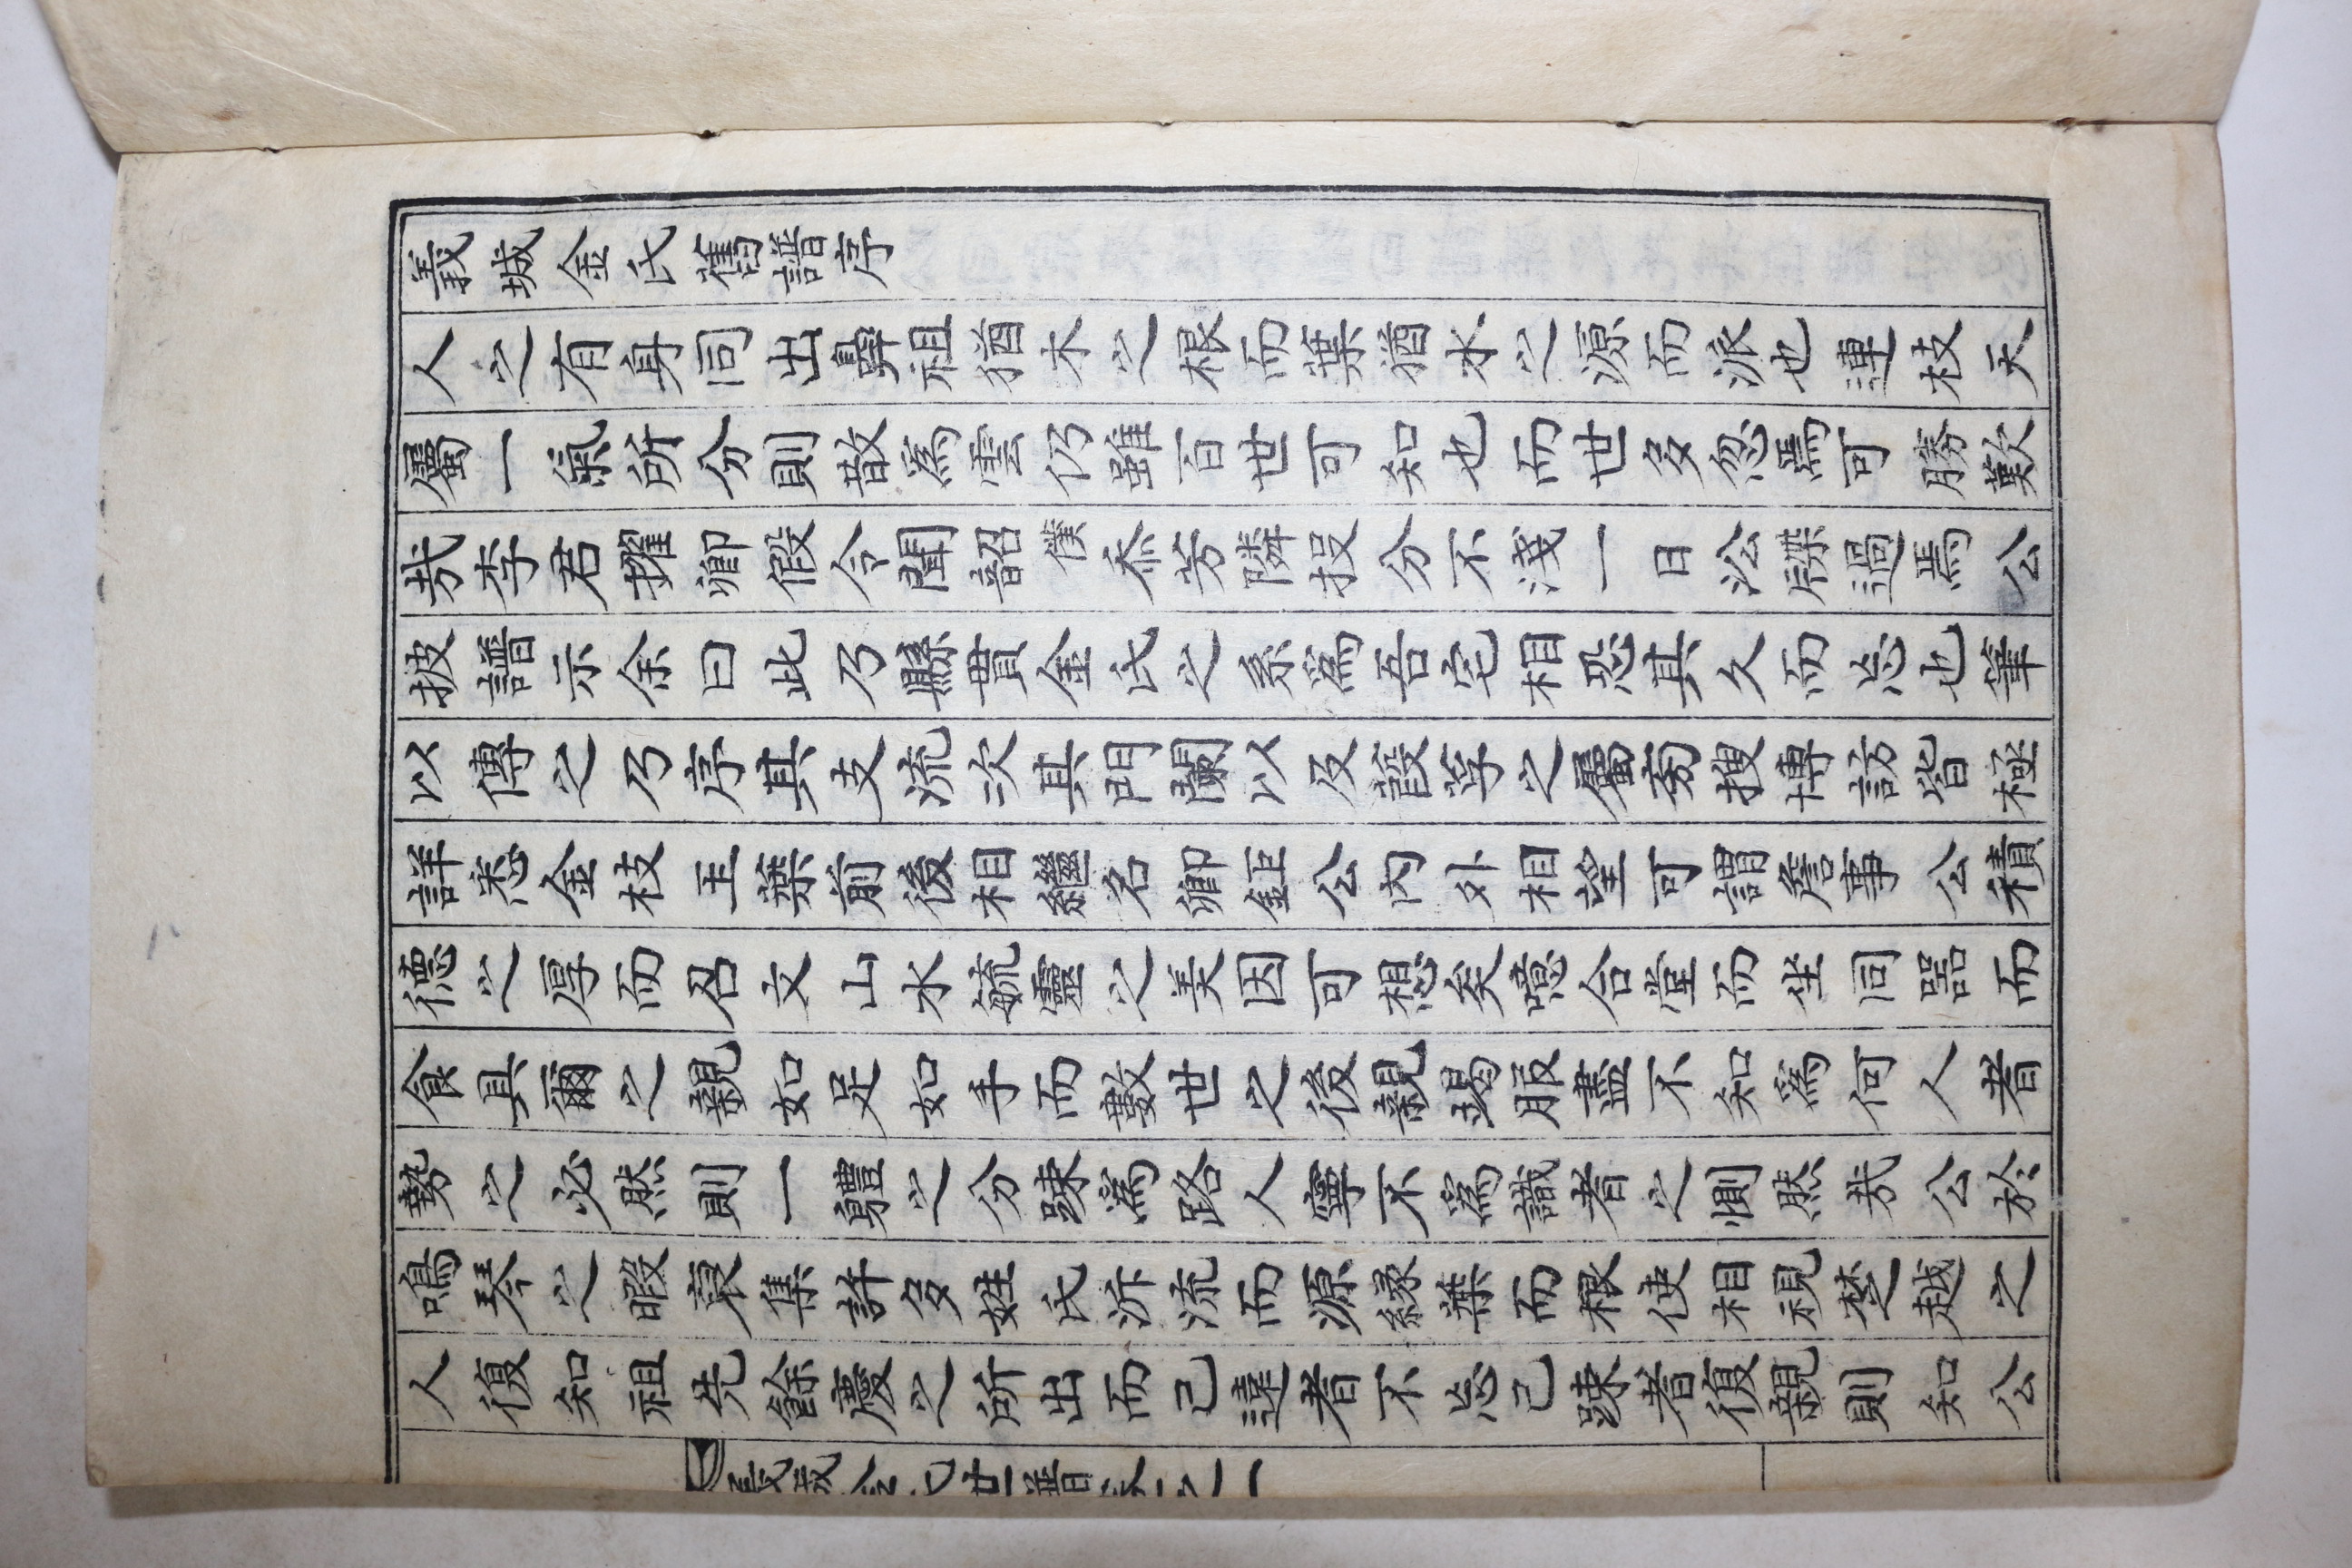 義城金氏舊譜序
人之有身同出鼻祖猶木之根而葉猶水之源而派也連枝天
屬一氣所分則散爲雲仍雖百世可知也而世多忽焉可勝歎
㢤李君擢卿假令聞韶僕忝芳隣投分不淺一日㳂牒過焉公
披譜示余曰此乃縣貫金氏之系爲吾宅相恐其久而忘也筆
以傳之乃序其支流次其門闌以及葭莩之屬旁搜博訪皆極
詳悉金枝玉葉前後相繼名卿鉅公內外相望可謂詹事公積
德之厚而召文山水毓靈之美因可想矣噫合堂而坐同噐而
食具爾之親如足如手而數世之後親竭服盡不知爲何人者
勢之必然則一軆之分踈爲路人寧不爲識者之惻然㢤公於
鳴琴之暇裒集許多姓氏泝流而源緣葉而根使相視楚越之
人復知祖先餘慶之所出而己遠者不忘己踈者復親則知公
義城金氏世譜卷之一 一